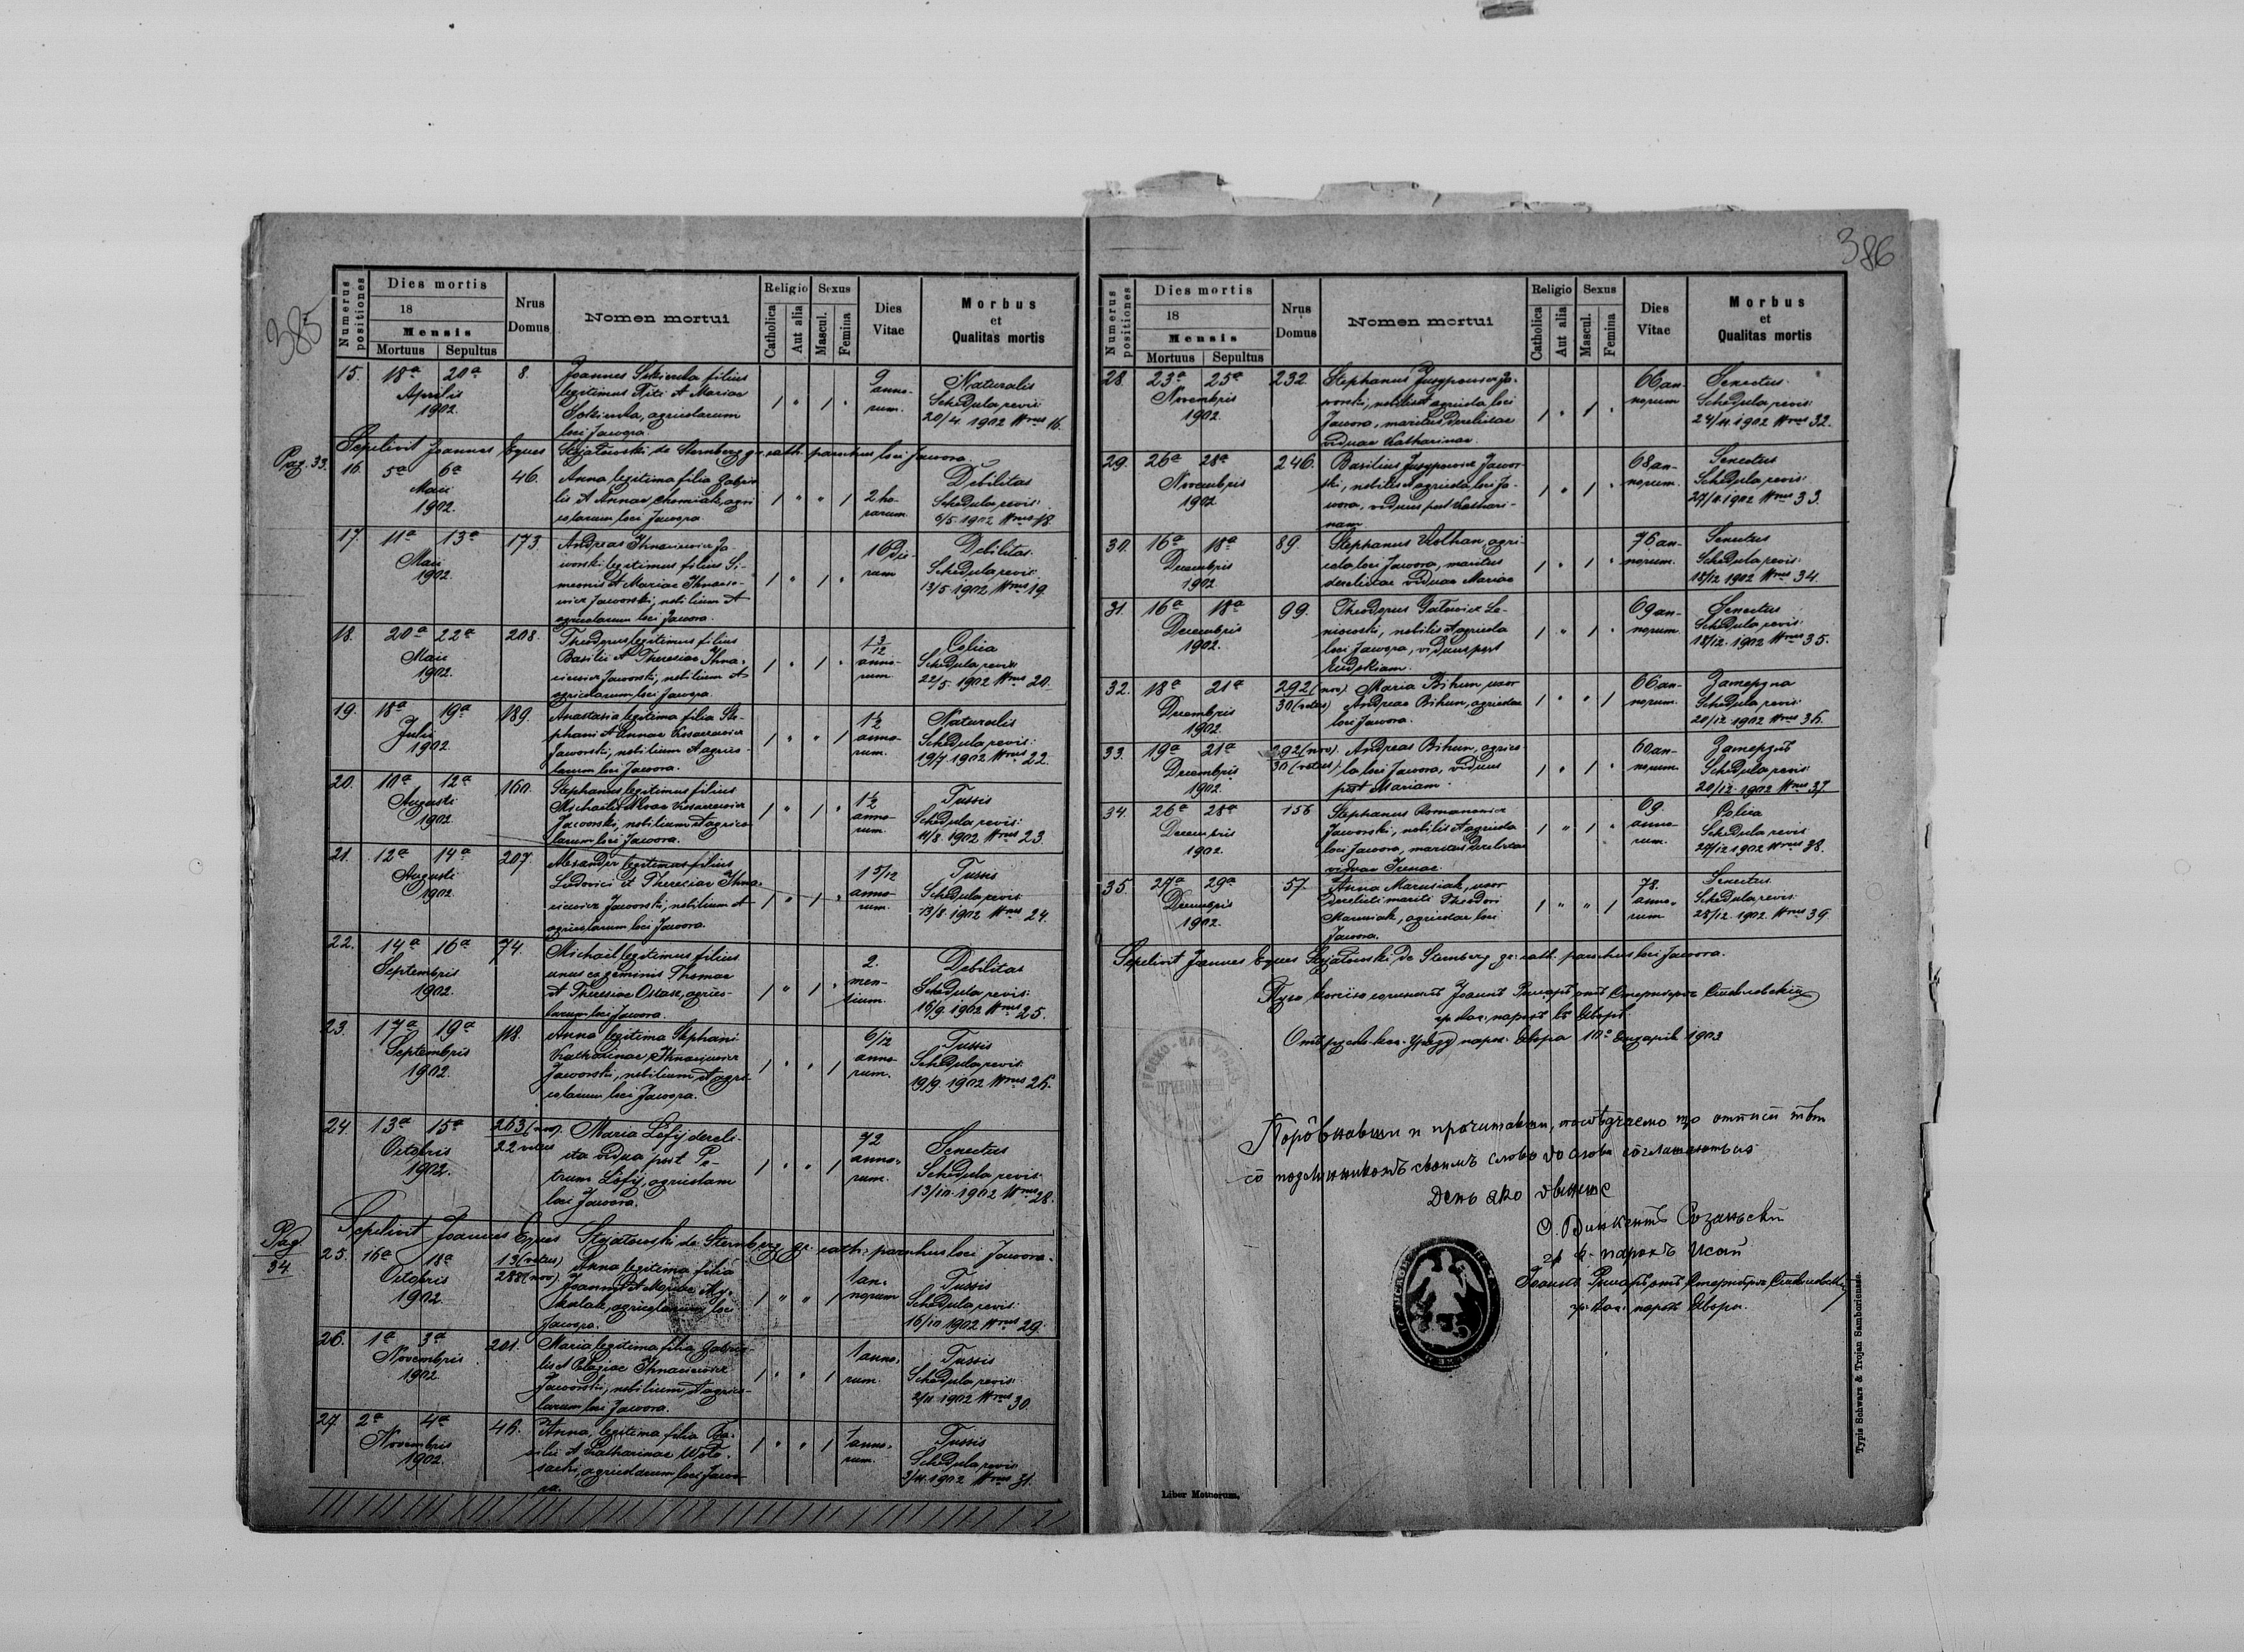 385
Numerus positiones
Dies mortis
18
Mensis
Mortuus Sepultus
Nrus Domus
Nomen mortui
Religio
Catholica
Aut alia
Sexus
Mascul.
Femina
Dies Vitae
Morbus
et
Qualitas mortis
15. 18a 20a Aprilis 1902. 8.
Joannes filius
legitimus Titi et Mariae
agricolarum
loci Jawora.
1 " 1 "
9 annorum.
Naturalis
Schedula revis:
20/4 1902 Nrus 16.
Pag. 33.
Sepelivit Joannes Eques de Sternberg gr. cath. parochus loci Jawora.
16. 5a 6a Maii 1902. 46.
Anna legitima filia Gabrie-
lis et Annae agri-
colarum loci Jawora
1 " " 1
2 ho-
rarum
Debilitas
Schedula revis:
6/5 1902 Nrus 18
17. 11a 13a Maii 1902. 173
Andreas Ihnaciewicz Ja-
worski legitimus filius Si-
meonis et Mariae Ihnacie-
wicz Jaworski, nobilium et
agricolarum loci Jawora.
1 " 1 "
16 die-
rum
Debilitas.
Schedula revis:
13/5 1902 Nrus 19.
18. 20a 22a Maii 1902. 208.
Theodorus legitimus filius
Basilii et Theresiae Ihna-
ciewicz Jaworski, nobilium et
agricolarum loci Jawora.
1 " 1 "
1 3/12
anno-
rum.
Colica
Schedula revis
22/5 1902 Nrus 20.
19. 18a 19a Julii 1902 189.
Anastasia legitima filia Ste-
phani et Annae Kosacewicz
Jaworski, nobilium et agrico-
larum loci Jawora.
1 " " 1
1 1/2
anno-
rum.
Naturalis
Schedula revis:
19/7 1902 Nrus 22.
20. 10a 12a Augusti 1902. 160.
Stephanus legitimus filius
Michaelis et Evae Kosacewicz
Jaworski, nobilium et agrico-
larum loci Jawora.
1 " 1 "
1 1/2
anno-
rum.
Tussis
Schedula revis:
11/8. 1902 Nrus 23.
21. 12a 14a Augusti 1902. 207.
Alexander legitimus filius
Ludovici et Theresiae Ihna-
ciewicz Jaworski, nobilium et
agricolarum loci Jawora.
1 " 1 "
1 5/12
anno-
rum.
Tussis
Schedula revis
13/8. 1902 Nrus 24.
22. 14a 16a Septembris 1902. 74.
Michael legitimus filius
unus ex geminis Thomae
et Theresiae Ostasz, agrico-
larum loci Jawora.
1 " 1 "
2.
men-
sium.
Debilitas
Schedula revis:
16/9. 1902 Nrus 25.
23. 17a 19a Septembris 1902. 118.
Anna legitima Stephani
Katharinae Ihnaciewicz
Jaworski, nobilium et agri-
colarum loci Jawora.
1 " " 1
6/12
anno-
rum.
Tussis
Schedula revis:
19/9. 1902 Nrus 26.
24. 13a 15a Octobris 1902. 263 (nov.) 22 vetus
Maria Lofij dereli-
cta vidua post Pe-
trum Lofij, agricolam
loci Jawora.
1 " " 1
72
anno-
rum.
Senectus
Schedula revis:
13/10 1902 Nrus 28.
Pag 34
Sepelivit Joannes Eques de Sternberg gr. cath. parochus loci Jawora.
25. 16a 18a Octobris 1902 13 (vetus) 288 (nov)
Anna legitima filia
Joannis et Mariae
agricolarum loci
Jawora.
1 " " 1
1 an-
norum
Tussis
Schedula revis:
16/10 1902 Nrus 29.
26. 1a 3a Novembris 1902 201.
Maria legitima filia Gabrie-
lis et Pelagiae Ihnaciewicz
Jaworski, nobilium et agrico-
larum loci Jawora.
1 " " 1
1 anno-
rum.
Tussis
Schedula revis:
2/11 1902 Nrus 30.
27. 2a 4a Novembris 1902. 46.
Anna, legitima filia Ba-
silii et Katharinae
agricolarum loci Jawo-
ra.
1 " " 1
1 anno-
rum.
Tussis
Schedula revis
3/11. 1902 Nrus 31.
386
Numerus positiones
Dies mortis
18
Mensis
Mortuus Sepultus
Nrus Domus
Nomen mortui
Religio
Catholica
Aut alia
Sexus
Mascul.
Femina
Dies Vitae
Morbus
et
Qualitas mortis
28. 23a 25a Novembris 1902. 232
Stephanus Jusypowicz Ja-
worski, nobilis et agricola loci
Jawora, maritus derelictae
viduae Katharinae.
1 " 1 "
66 an-
norum
Senectus.
Schedula revis:
24/11. 1902 Nrus 32.
29. 26a 28a Novembris 1902. 246.
Basilius Jusypowicz Jawor-
ski, nobilis et agricola loci Ja-
wora, viduus post Kathari-
nam
1 " 1 "
68 an-
norum.
Senectus
Schedula revis:
27/11. 1902 Nrus 33.
30. 16a 18a Decembris 1902 89.
Stephanus Kolhan, agri-
cola loci Jawora, maritus
derelictae viduae Mariae
1 " 1 "
76 an-
norum.
Senectus
Schedula revis:
18/12 1902 Nrus 34.
31. 16a 18a Decembris 1902. 99.
Theodorus
nobilis et agricola
loci Jawora, viduus post
Eudokiam.
1 " 1 "
69 an-
norum
Senectus.
Schedula revis:
18/12. 1902 Nrus 35.
32. 18a 21a Decembris 1902. 292 (nov) 30 (vetus)
Maria Bihun, uxor
Andreae Bihun, agricolae
loci Jawora.
1 " " 1
66 an-
norum.
Schedula revis:
20/12 1902 Nrus 36.
33. 19a 21a Decembris 1902. 292 (nov). 30 (vetus)
Andreas Bihun, agrico-
la loci Jawora, viduus
post Mariam.
1 " 1 "
60 an-
norum.
Schedula revis:
20/12. 1902 Nrus 37.
34. 26a 28a Decembris 1902. 156
Stephanus Romanowicz
Jaworski, nobilis et agricola
loci Jawora, maritus derelictae
viduae Irenae.
1 " 1 "
69.
anno-
rum.
Colica
Schedula revis
28/12 1902 Nrus 38.
35. 27a 29a Decembris 1902. 57.
Anna Marusiak, uxor
derelicti mariti Theodori
Marusiak, agricolae loci
Jawora.
1 " " 1
78.
anno-
rum
Senectus.
Schedula revis:
28/12. 1902. Nrus 39
Sepelivit Joannes Eques de Sternberg gr. cath. parochus loci Jawora.
Іоаннъ Рыцарь отъ Стернберґъ
гр. кат. парохъ въ Явора
парох. Явора 10го Януарія 1903
и прочитавши, посвѣдчаемо що отписи тѣи
со подлинникомъ своимъ слово до слова соглашаются
День яко
О. Винкентъ Созаньскій
гр. к. парохъ Исаи
Іоаннъ Рыцарь отъ Стернберґъ
гр. кат. парохъ Явора.
Liber Motuorum.
Typis Schwarz & Trojan Samboriensis.